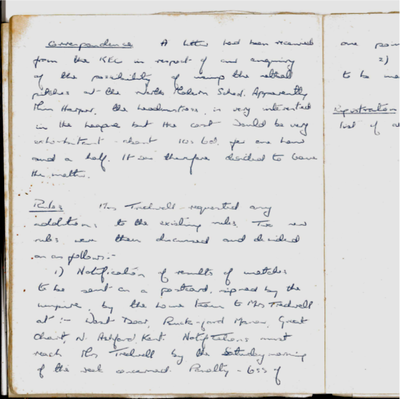 Correspondence A letter had been received
from the KEC in respect of our enquiry
of the possibility of using the netball
pitches at the North School. Apparently
Miss Harper, the headmistress, is very interested
in the league but the cost would be very
exhorbitant - about 10s 6d. per one hour
and a half. It was therefore decided to leave
the matter.
Rules Mrs Tredwell requested any
additions to the existing rules. Two new
rules were then discussed and decided
on as follows:-
1) Notification of results of matches
to be sent on a postcard, signed by the
umpires, by the home team to Mrs Tredwell
at :- Dear, Manor, Great
Chart, N. Ashford, Kent. Notifications must
reach Mrs Tredwell by the Saturday morning
of the week concerned. Penalty - loss of
one
2)
to be
Registration
list of